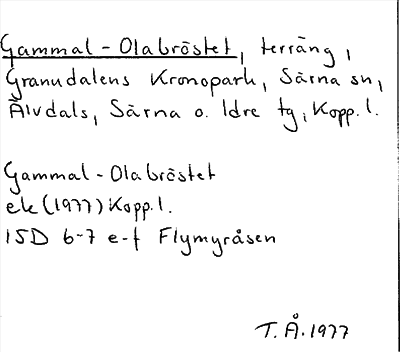 Gammal-Olabröstet, terräng,
Granudalens Kronopark, Särna sn,
Älvdals, Särna o. Idre tg, Kopp.l.
Gammal-Olabröstet
ek (1977) Kopp.l.
15D 6-7 e-f Flymyråsen
T.Å. 1977